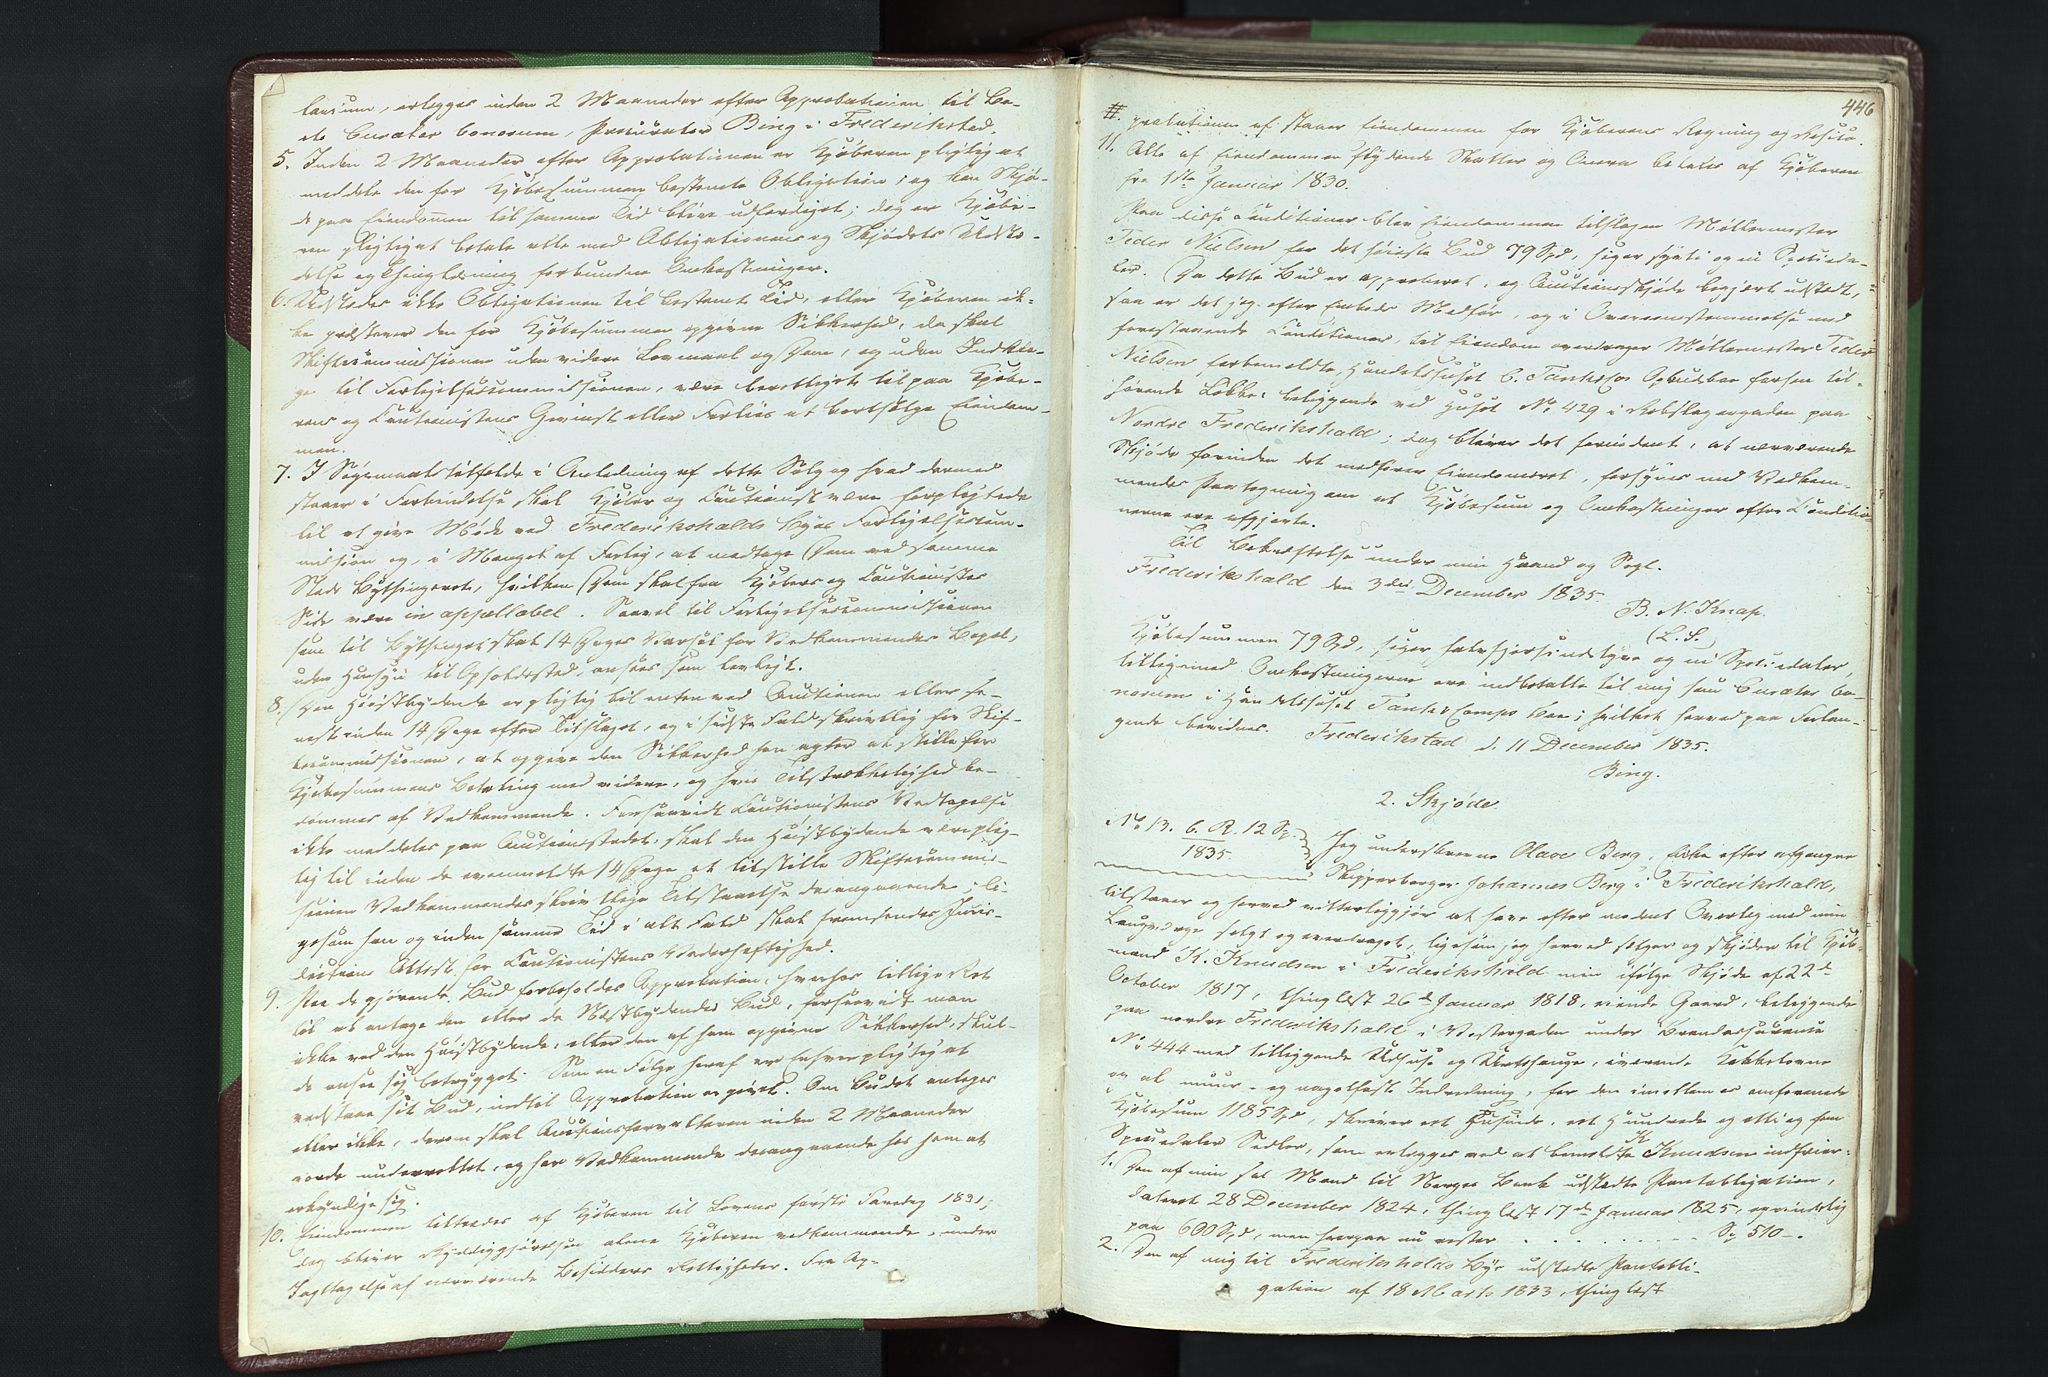 larium, erlegges inden 2 Maaneder efter Approbationen til Bo-
ets Curator bonorum, Procurator Bing i Frederikstad.
5. Inden 2 Maaneder efter Approbationen er Kjøberen pligtig at
meddele den for Kjøbesummen bestemte Obligation, og kan Skjø-
de paa Eiendommen til samme Tid blive udfærdiget; dog er Kjøbe-
ren pligtig at betale alle med Obligationens og Skjødets Udste-
delse og Thinglæsning forbundne Omkostninger.
6. Udstedes ikke Obligationen til bestemt Tid, eller Kjøberen ik-
ke præsterer den for Kjøbesummen opgivne Sikkerhed, da skal
Skiftecommissionen uden videre Lovmaal og Dom, og uden Indkla-
ge til Forligelsescommissionen, være berettiget til paa Kjøbe-
rens og Cautionistens Gevinst eller Forliis at bortsælge Eiendom-
men.
7. I Søgemaalstilfælde i Anledning af dette Salg og hvad dermed
staaer i Forbindelse skal Kjøber og Cautionist være forpligtede
til at give Møde ved Frederikshalds Byes Forligelsescom-
mission og, i Mangel af Forlig, at modtage Dom ved samme
Steds Bything, hvilken Dom skal fra Kjøbers og Cautionistes
Side være inappellabel. Saavel til Forligelsescommissionen
som til Bythinget skal 14 Dages Varsel for Vedkommende Bopæl,
uden Hensyn til Opholdssted, ansees som lovligt.
8. Den Høistbydende er pligtig til enten ved Auctionen eller se-
nest inden 14 Dage efter Tilslaget, og i sidste Fald skriftlig for Skif-
tecommissionen, at opgive den Sikkerhed han agter at stille for
Kjøbesummens Betaling med videre, og hvis Tilstrækkelighed be-
dømmes af Vedkommende. Forsaavidt Cautionistens Vedtagelse
ikke meddeles paa Auctionsstedet, skal den Høistbydende være plig-
tig til inden de ovenmeldte 14 Dage at tilstille Skiftecommis-
sionen Vedkommendes skriftlige Tilstaaelse desangaaende, li-
gesom han og inden samme Tid i alt Fald skal fremsende Juris-
dictions Attest for Cautionistens Vederheftighed.
9. Paa de gjørende Bud forbeholdes Approbation, hvorhos tillige Ret
til at antage den eller de Næstbydendes Bud, forsaavidt man
ikke ved den Høistbydende, eller den af ham opgivne Sikkerhed, skul-
de ansee sig betrygget. Som en Følge heraf er Enhver pligtig at
vedstaae sit Bud, indtil Approbation er givet. Om Budet antages
eller ikke, derom skal Auctionsforvalteren inden 2 Maaneder
vorde underrettet, og har Vedkommende desangaaende hos ham at
erkyndige sig.
10. Eiendommen tiltrædes af Kjøberen til Lovens første Faredag 1831;
dog bliver Ryddiggjørelsen alene Kjøberen vedkommende, under
Iagttagelse af nærværende Besidderes Rettigheder. Fra Ap-
446
# probationen af staaer Eiendommen for Kjøberens Regning og Risico.
11. Alle af Eiendommen flydende Skatter og Onera betales af Kjøberen
fra 1ste Januar 1830.
Paa disse Conditioner blev Eiendommen tilslagen Møllermester
Peder Nielsen for det høieste Bud 79 Spd, siger sytti og ni Specieda-
ler. Da dette Bud er approberet, og Auctionsskjøde begjært udstedt,
saa er det jeg efter Embeds Medfør, og i Overensstemmelse med
forestaaende Conditioner, til Eiendom overdrager Møllermester Peder
Nielsen, forbemeldte, Handelshuset C. Tank & Cos Opbudsboe forhen til-
hørende Løkke, beliggende ved Huset No 429 i Rebslagergaden paa
Nordre Frederikshald; dog bliver det fornødent, at nærværende
Skjøde forinden det medfører Eiendomsret, forsynes med Vedkom-
mendes Paategning om at Kjøbesum og Omkostninger efter Conditio-
nerne ere afgjorte.
Til Bekræftelse under min Haand og Segl.
Frederikshald den 3die December 1835.
B. N. Knap.
(L.S.)
Kjøbesummen 79 Spd, siger halvfjersindstyve og ni Speciedaler,
tilligemed Omkostningerne ere indbetalte til mig som Curator bo-
norum i Handelshuset Tank & Comps Boe; hvilket herved paa Forlan-
gende bevidnes. Frederikstad d. 11 December 1835.
Bing.
2. Skjøde
No 13. C. R. 12 Sp.
1835.
Jeg underskrevne Olave Berg, Enke efter afgangne
Skipperborger Johannes Berg i Frederikshald,
tilstaaer og herved vitterliggjør at have efter modent Overlæg med min
Laugværge solgt og overdraget, ligesom jeg herved sælger og skjøder til Kjøb-
mand K. Knudsen i Frederikshald min ifølge Skjøde af 22de
October 1817, thinglæst 26de Januar 1818, eiende Gaard, beliggende
paa nordre Frederikshald i Vestergaden under Brandassurance
No 444 med tilliggende Udhuse og Urtehauge, iværende Kakkelovne
og al muur- og nagelfast Indredning, for den imellem os omforenede
Kjøbesum 1185 Spd, skriver et Tusinde, et Hundrede og otti og fem
Speciedaler Sedler, som erlægges ved at bemeldte K Knudsen indfrier:
1. Den af min sal Mand til Norges Bank udstedte Pantobligation,
dateret 28 December 1824, thinglæst 17de Januar 1825, oprindelig
paa 600 Spd, men hvorpaa nu rester . . . . . . . . . Sp 510 –.
2. Den af mig til Frederikshalds Bye udstedte Pantobli-
gation af 18 Marts 1833, thinglæst